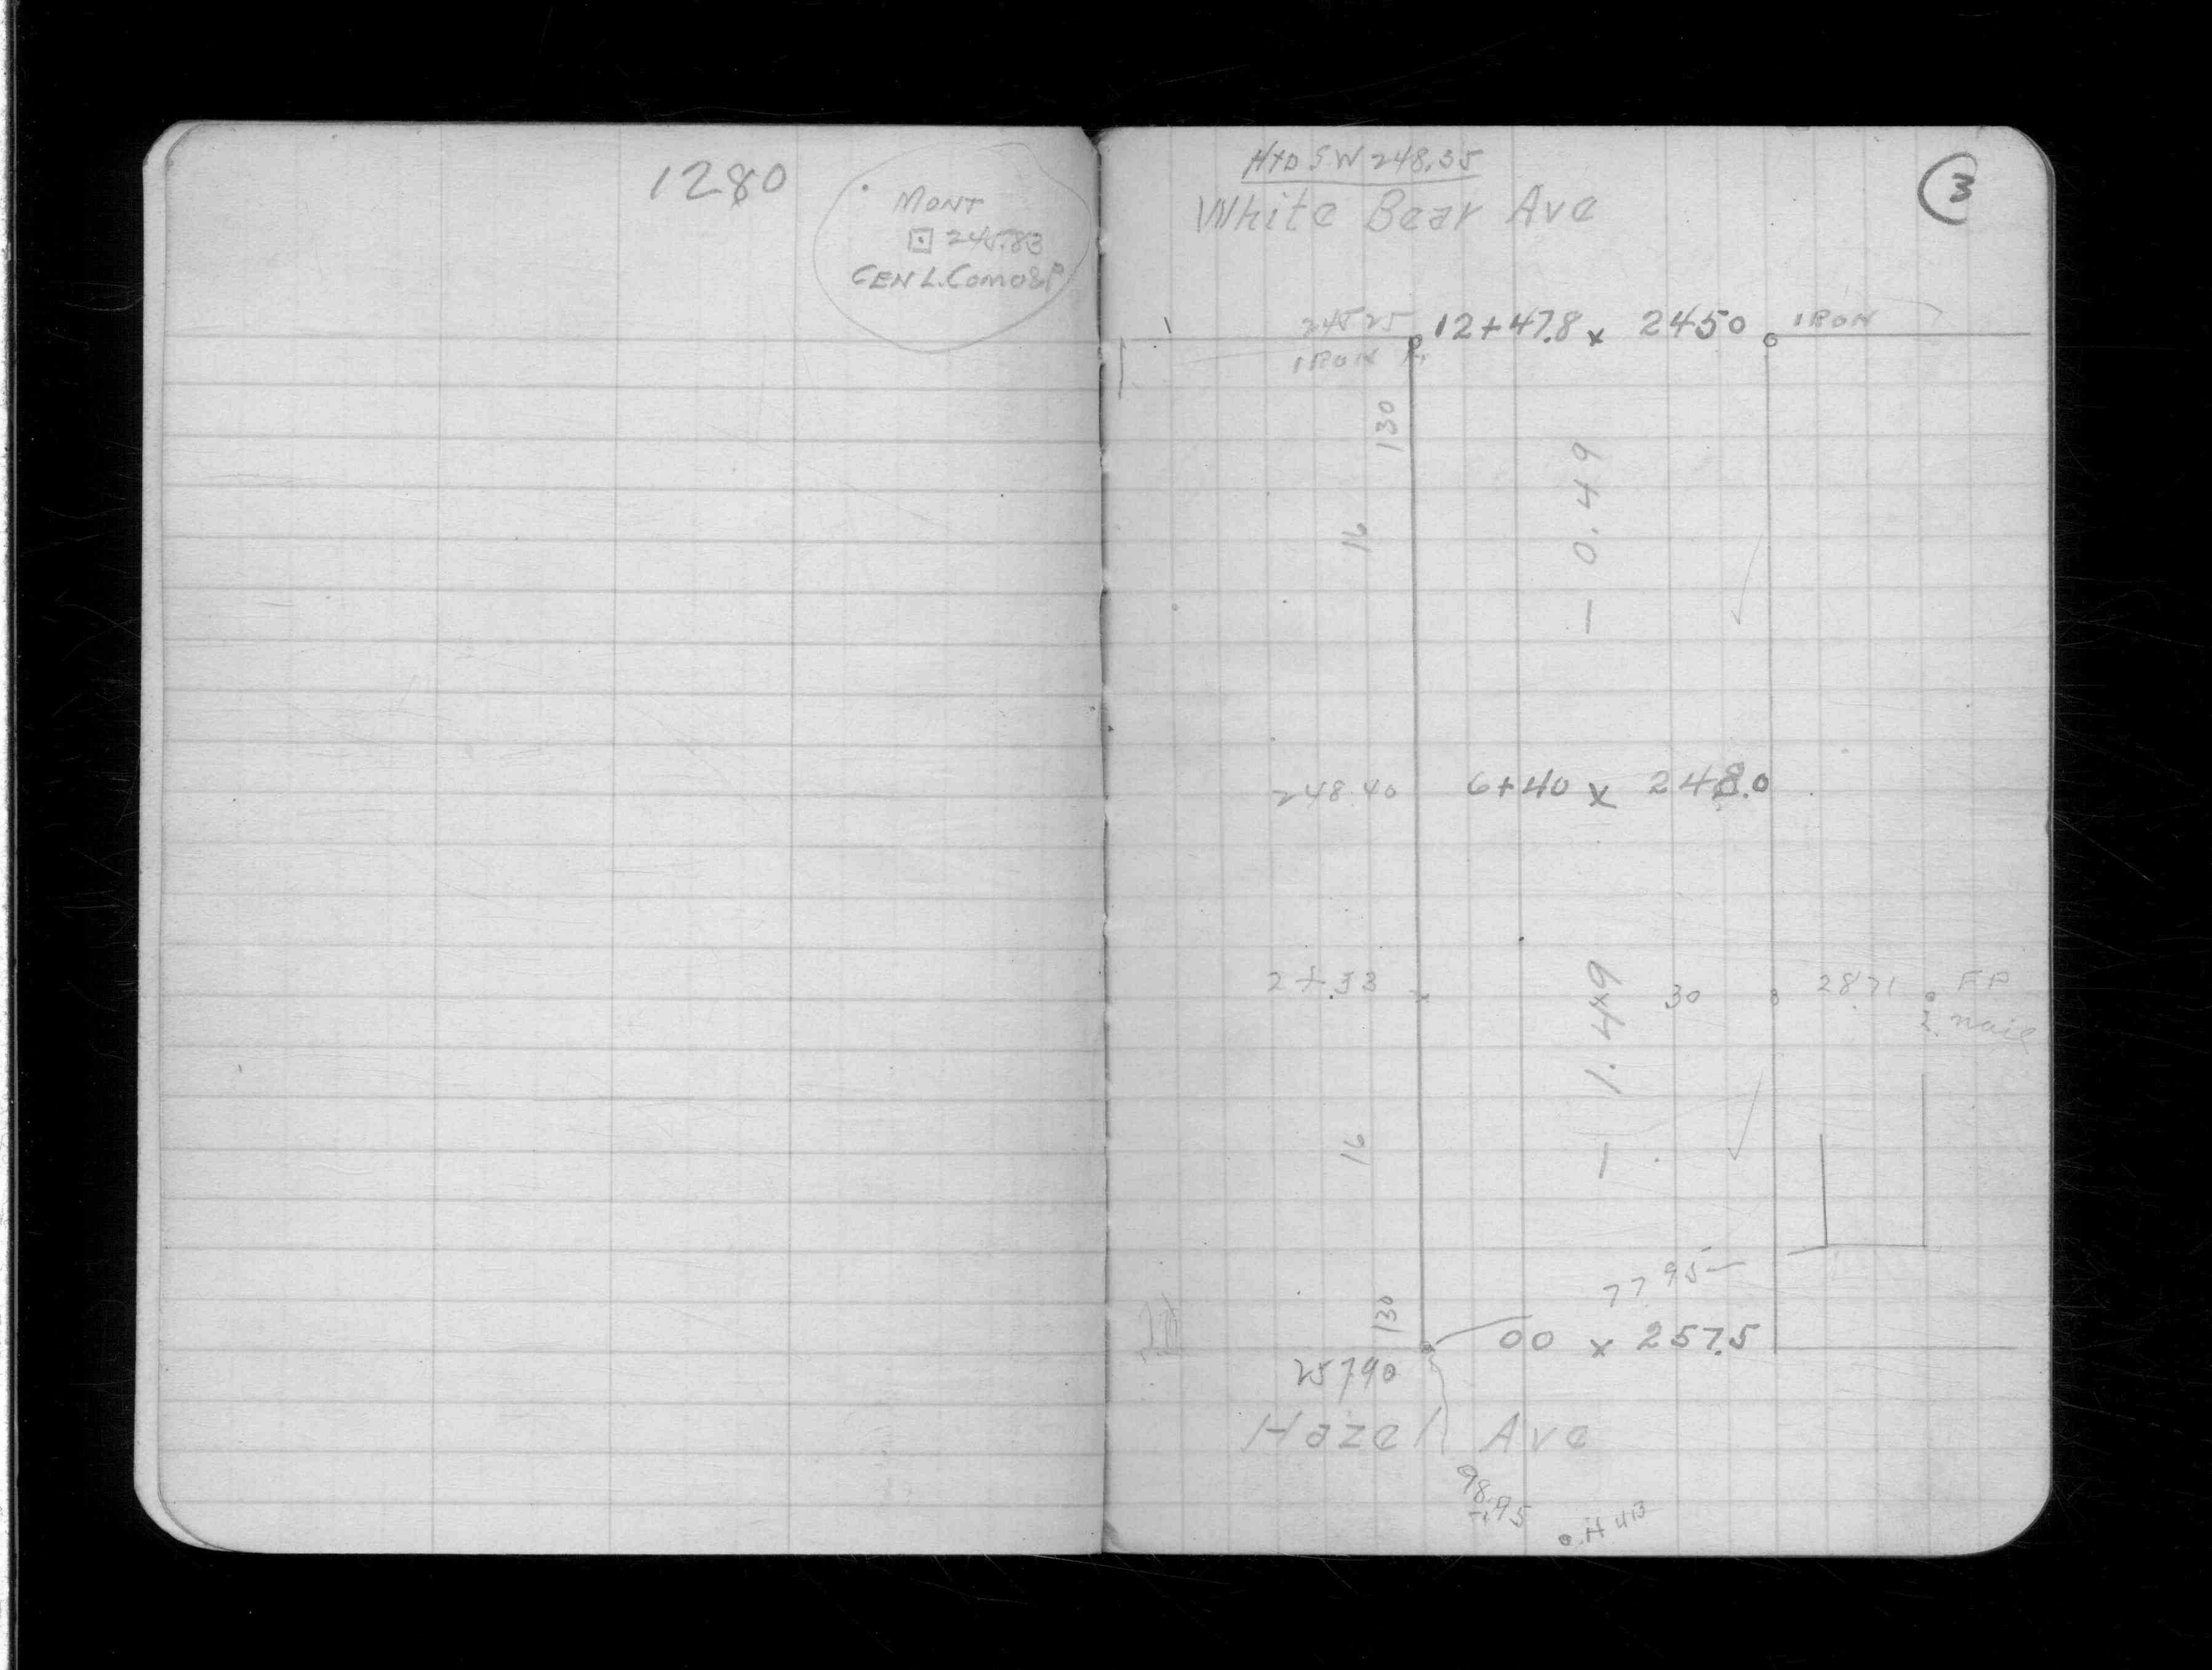 1280
MONT
245.83
CEN L. Como & P
HYD SW 248.35
3
White Bear Ave
245 25
12+47.8 x 245 0
IRON
IRON
130
16
- 0.49
248 40
6+40 x 248.0
2+.33
30
28.71
FP
nail
- 1.49
16
77 95
130
00 x 257.5
257.90
Hazel Ave
98.
HUB